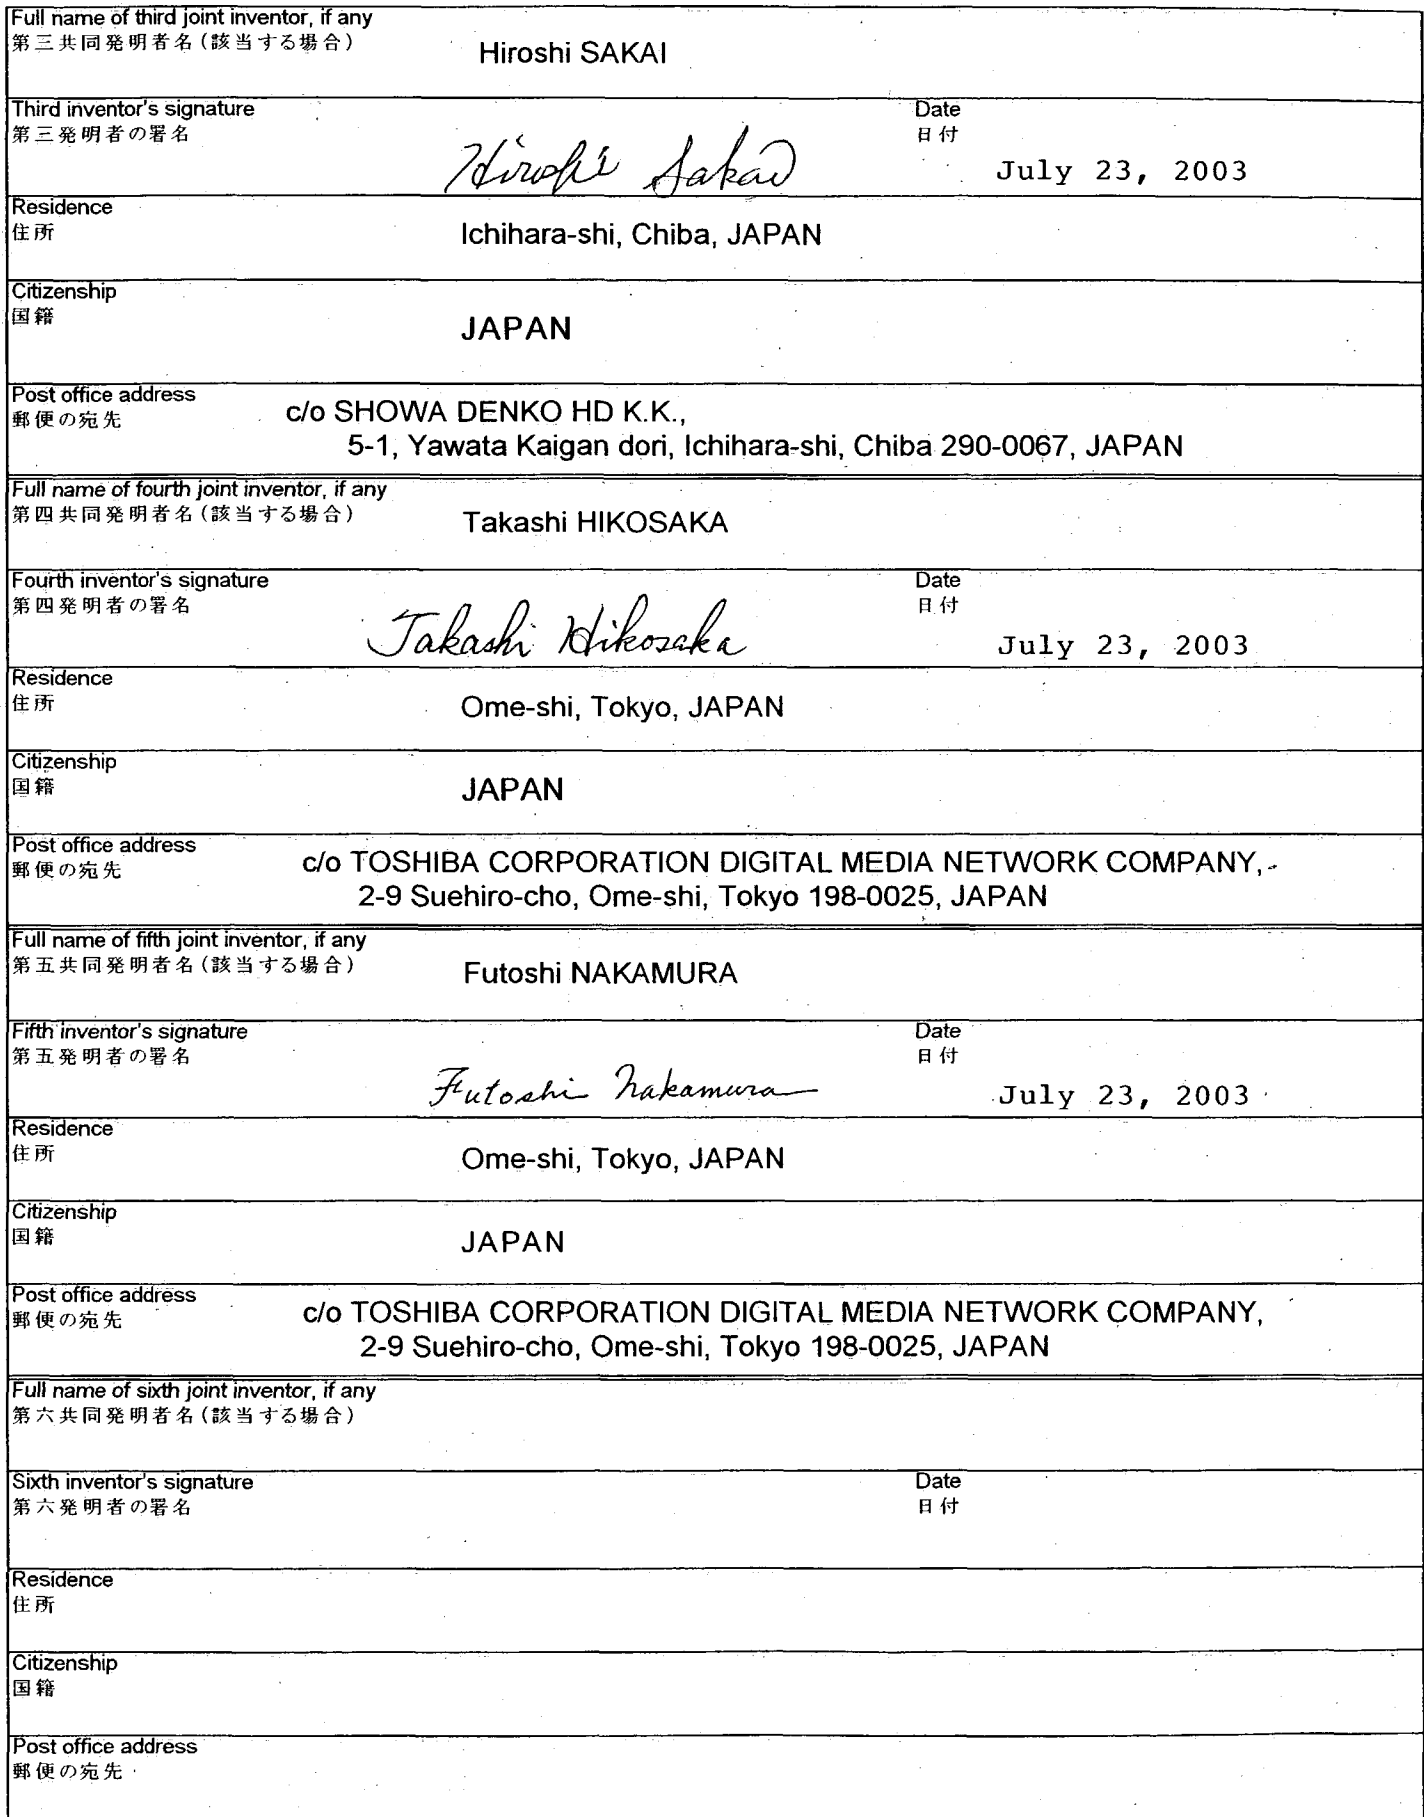 Full name of third joint inventor, if any
第三共同発明者名（該当する場合）
Hiroshi SAKAI
Third inventor's signature
第三発明者の署名
Date
日付
Hiroshi Sakai
July 23, 2003
Residence
住所
Ichihara-shi, Chiba, JAPAN
Citizenship
国籍
JAPAN
Post office address
郵便の宛先
c/o SHOWA DENKO HD K.K.,
5-1, Yawata Kaigan dori, Ichihara-shi, Chiba 290-0067, JAPAN
Full name of fourth joint inventor, if any
第四共同発明者名（該当する場合）
Takashi HIKOSAKA
Fourth inventor's signature
第四発明者の署名
Date
日付
Takashi Hikosaka
July 23, 2003
Residence
住所
Ome-shi, Tokyo, JAPAN
Citizenship
国籍
JAPAN
Post office address
郵便の宛先
c/o TOSHIBA CORPORATION DIGITAL MEDIA NETWORK COMPANY,
2-9 Suehiro-cho, Ome-shi, Tokyo 198-0025, JAPAN
Full name of fifth joint inventor, if any
第五共同発明者名（該当する場合）
Futoshi NAKAMURA
Fifth inventor's signature
第五発明者の署名
Date
日付
Futoshi Nakamura
July 23, 2003
Residence
住所
Ome-shi, Tokyo, JAPAN
Citizenship
国籍
JAPAN
Post office address
郵便の宛先
c/o TOSHIBA CORPORATION DIGITAL MEDIA NETWORK COMPANY,
2-9 Suehiro-cho, Ome-shi, Tokyo 198-0025, JAPAN
Full name of sixth joint inventor, if any
第六共同発明者名（該当する場合）
Sixth inventor's signature
第六発明者の署名
Date
日付
Residence
住所
Citizenship
国籍
Post office address
郵便の宛先